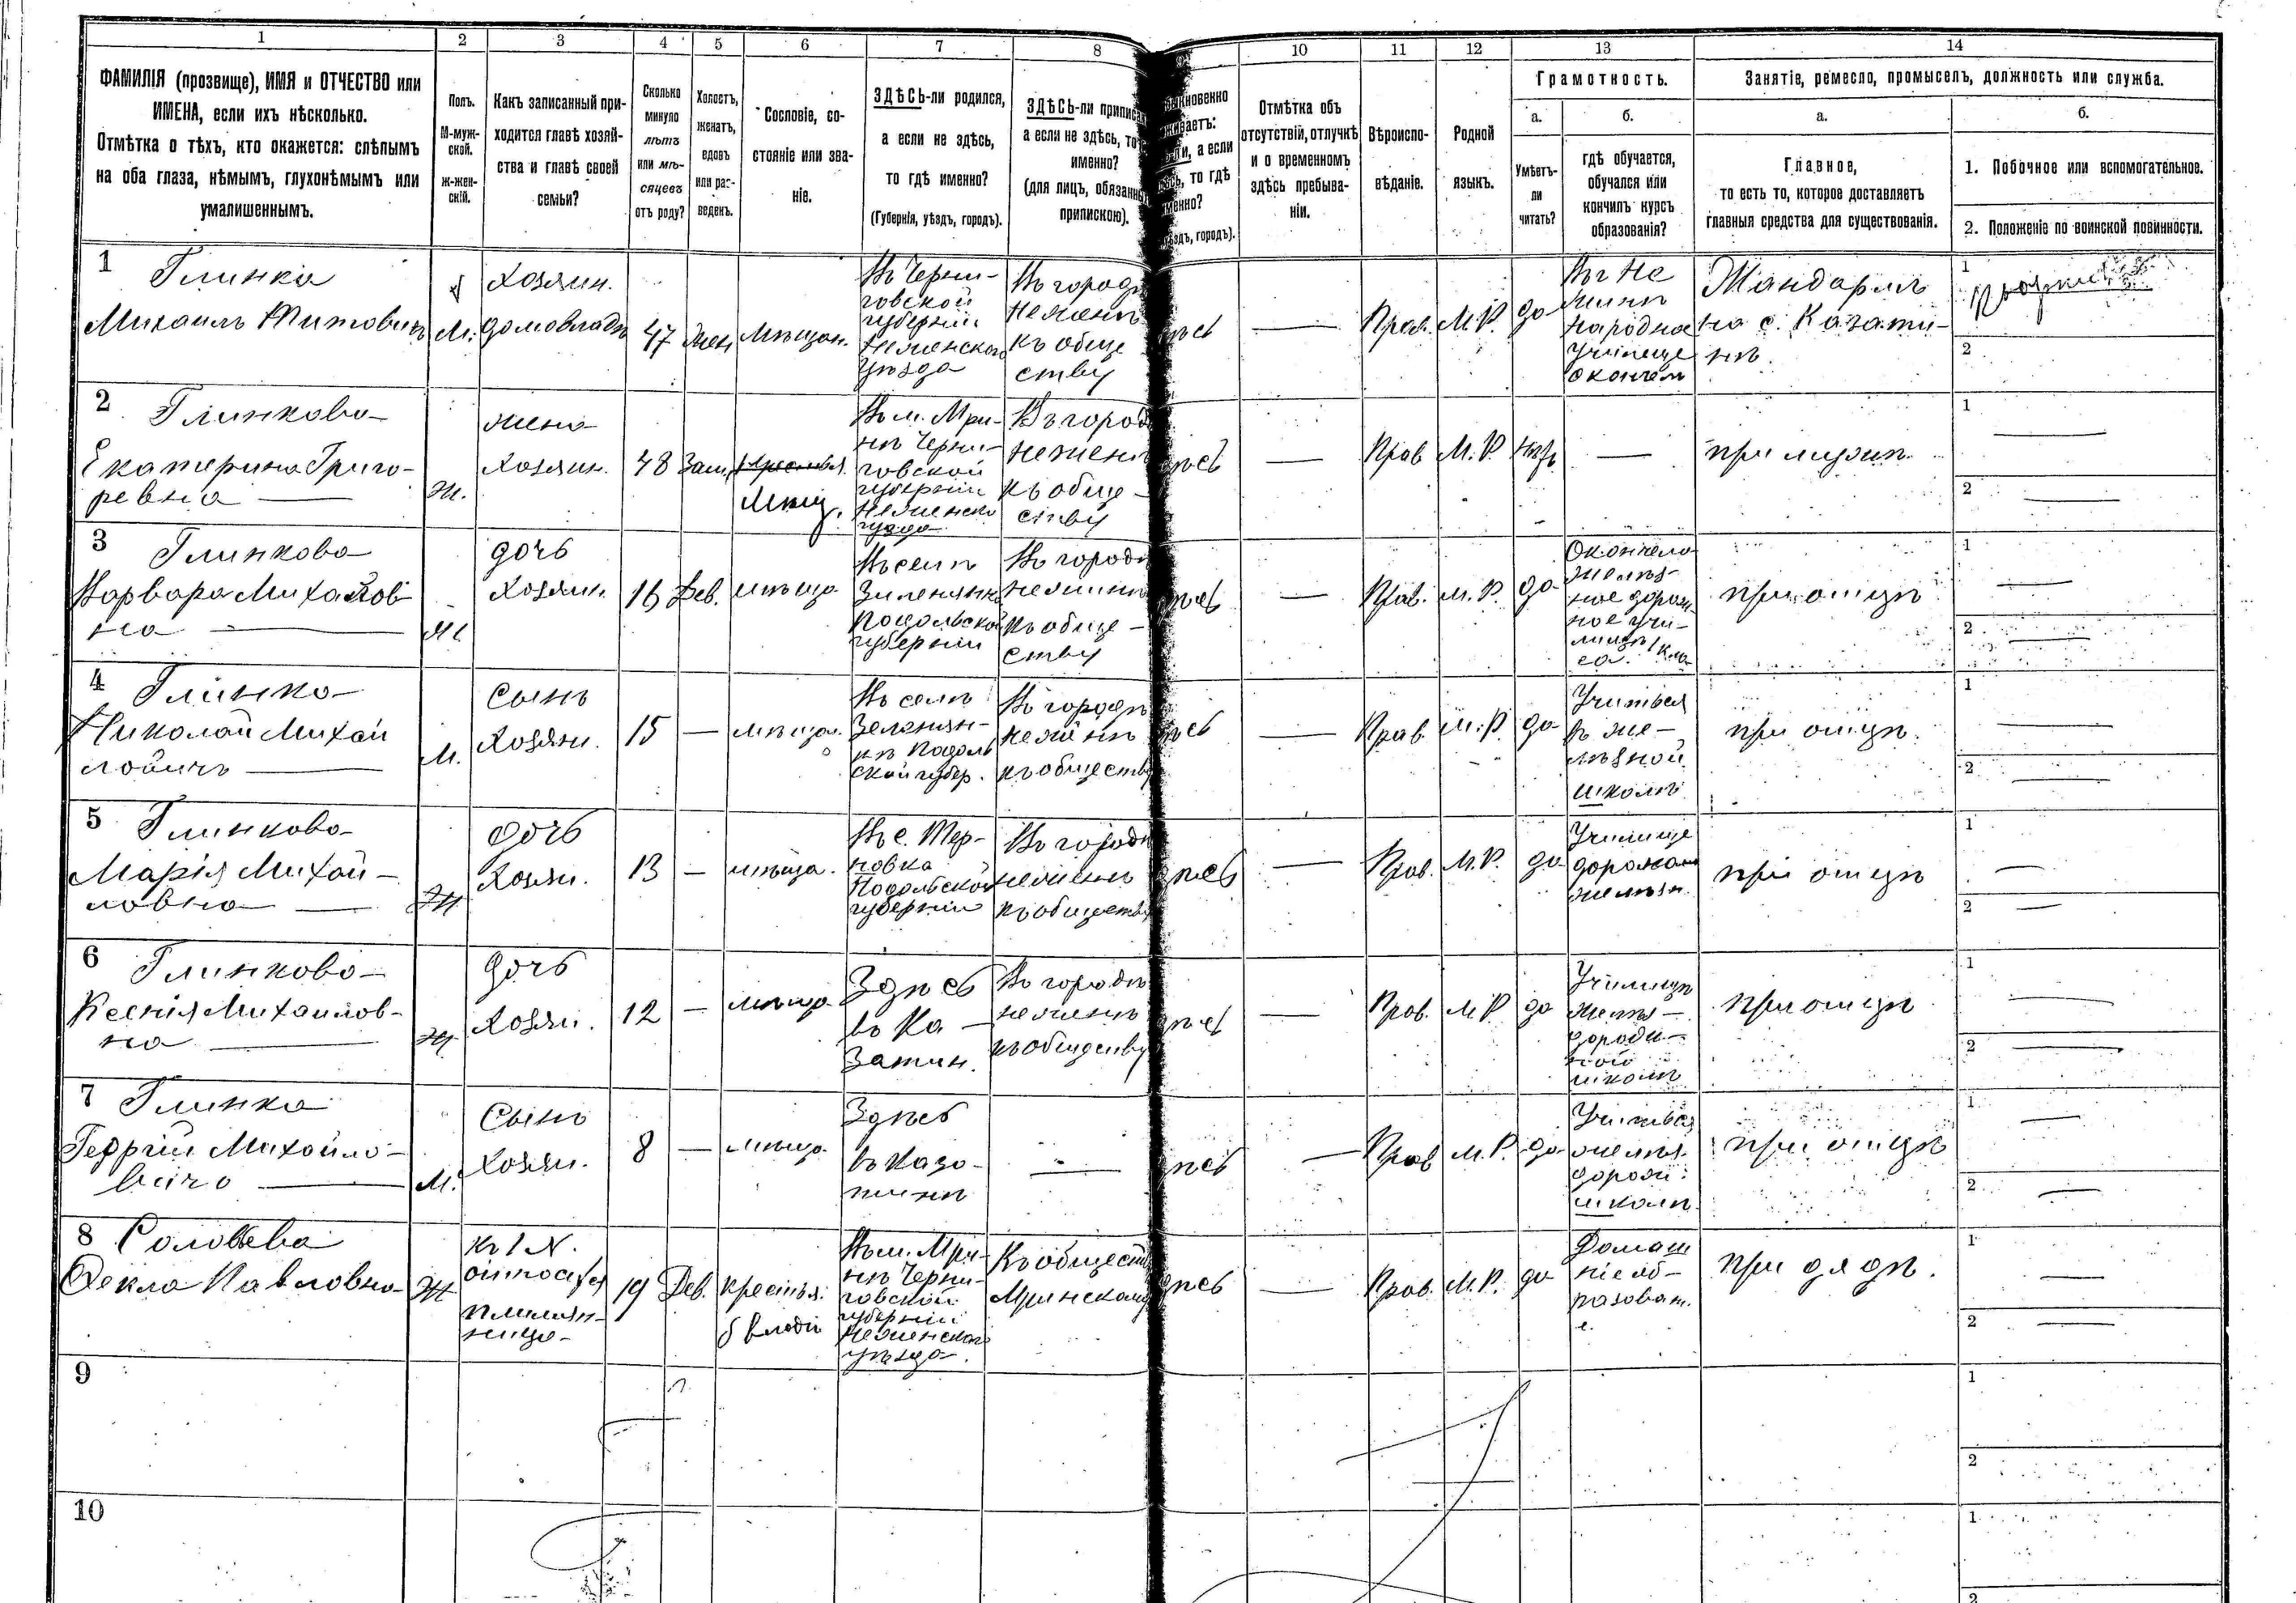 1 2 3 4 5 6 7 8 10 11 12 13 14
ФАМИЛІЯ (прозвище), ИМЯ и ОТЧЕСТВО или
ИМЕНА, если ихъ нѣсколько.
Отмѣтка о тѣхъ, кто окажется: слѣпымъ
на оба глаза, нѣмымъ, глухонѣмымъ или
умалишеннымъ.
Полъ.
М-муж-
ской.
Ж-жен-
скій.
Какъ записанный при-
ходится главѣ хозяй-
ства и главѣ своей
семьи?
Сколько
минуло
лѣтъ
или мѣ-
сяцевъ
отъ роду?
Холостъ,
женатъ,
вдовъ
или раз-
веденъ.
Сословіе, со-
стояніе или зва-
ніе.
ЗДѢСЬ-ли родился,
а если не здѣсь,
то гдѣ именно?
(Губернія, уѣздъ, городъ).
ЗДѢСЬ-ли приписа
а если не здѣсь, то
именно?
(для лицъ, обязанн
припискою).
ыкновенно
живаетъ:
ли, а если
сь, то гдѣ
менно?
ѣздъ, городъ).
Отмѣтка объ
отсутствіи, отлучкѣ
и о временномъ
здѣсь пребыва-
ніи.
Вѣроиспо-
вѣданіе.
Родной
языкъ.
Грамотность.
а.
Умѣетъ-
ли
читать?
б.
гдѣ обучается,
обучался или
кончилъ курсъ
образованія?
Занятіе, ремесло, промыселъ, должность или служба.
а.
Главное,
то есть то, которое доставляетъ
главныя средства для существованія.
б.
1. Побочное или вспомогательное.
2. Положеніе по воинской повинности.
1
Глинка
Михаилъ Титовичъ
М.
Хозяин.
домовладъ
47
жен
Мѣщан.
Въ Черни-
говской
губерніи
Неженскаго
Уѣзда
Въ городѣ
Неженъ
къ обще
ству
ѣсь
—
Прав.
М.Р.
да
Въ Не
жинѣ
народное
Училище
окончелъ
Жандармъ
на с. Казати-
нѣ.
1
2
2
Глинкова
Екатерина Григо-
ревна
Ж.
жена
Хозяин.
48
Зам.
Мѣщ.
Въ м. Мри-
нѣ Черни-
говской
губерніи
Неженско
уѣзда
Въ город
неженъ
къ обще-
ству
ѣсь
—
Прав
М.Р.
нѣтъ
—
при мужѣ.
1 —
2 —
3
Глинкова
Варвара Михайлов
на
дочь
Хозяин.
16
Дев.
мѣща
Въ селѣ
Подольской
губерніи
Въ городѣ
нежинъ
къ обще-
ству
ѣсь
—
Прав.
М.Р.
да
Окончела
желѣз-
ное дорож
ное учи-
при отцѣ
1 —
2 —
4
Глинка
Николай Михай
ловичъ
М.
Сынъ
Хозяин.
15
—
мѣщан.
Въ селѣ
Зеленян-
кѣ Подоль
ской губер.
Въ городѣ
нежинъ
къ обществу
ѣсь
—
Прав.
М.Р.
да
Учиться
въ же-
лѣзной
школѣ
при отцѣ.
1 —
2 —
5
Глинкова
Марія Михай-
ловна
Ж
дочь
Хозяи.
13
—
мѣща.
Въ с. Тер-
новка
Подольской
губерніи
Въ городѣ
неженъ
къ обществу
здѣсь
—
Прав.
М.Р.
да
Училище
дорожна
желѣзн.
при отцѣ
1 —
2 —
6
Глинкова
Ксенія Михаилов-
на
Ж
дочь
Хозяи.
12
—
мѣща
Здѣсь
въ Ка-
затин.
Въ городѣ
неженъ
къ обществу
здѣсь
—
Прав.
М.Р.
да
Училищѣ
желѣз-
дорож-
ной
школѣ
при отцѣ
1 —
2 —
7
Глинка
Георгій Михайло-
вичъ
М.
Сынъ
Хозяи.
8
—
мѣща
Здѣсь
въ Каза-
тинѣ
—
здѣсь
—
Прав
М.Р.
да
Учиться
желѣз.
дорож.
школѣ
при отцѣ
1 —
2 —
8
Соловьева
Фекла Павловна
Ж
къ 1 N.
относится
племян-
ница
19
Дев.
крестья.
Въ м. Мри-
нѣ Черни-
говской
губерніи
Неженскаго
уѣзда.
Къ обществ
Мринскому
здѣсь
—
Прав.
М.Р.
да
Домаш
ніе об-
разован.
е.
при дядѣ.
1 —
2 —
9
1
2
10
1
2